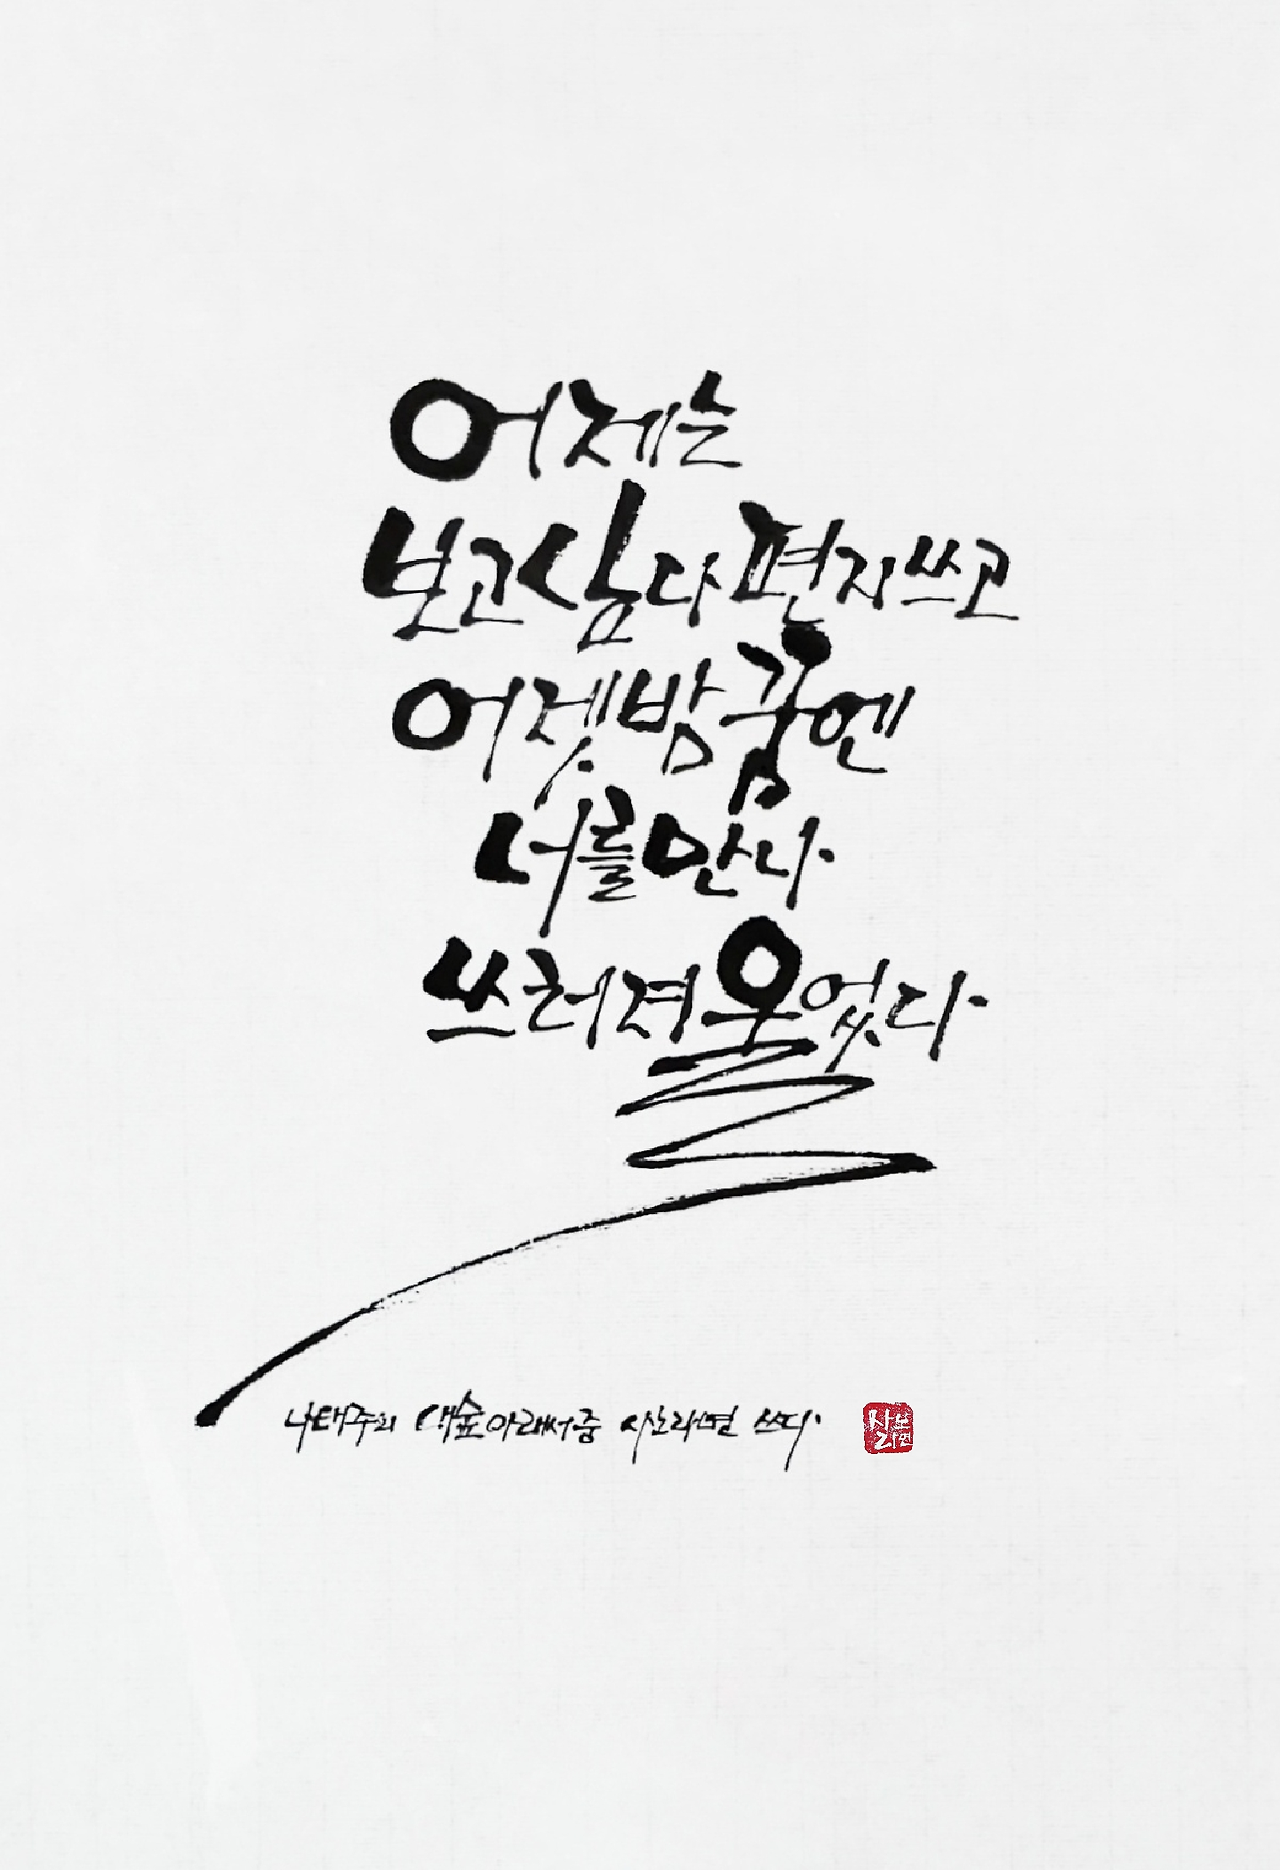 어제는
보고싶다 편지쓰고
어젯밤 꿈엔
너를 만나
쓰러져 울었다
나태주의 대숲아래서 중 쓰다